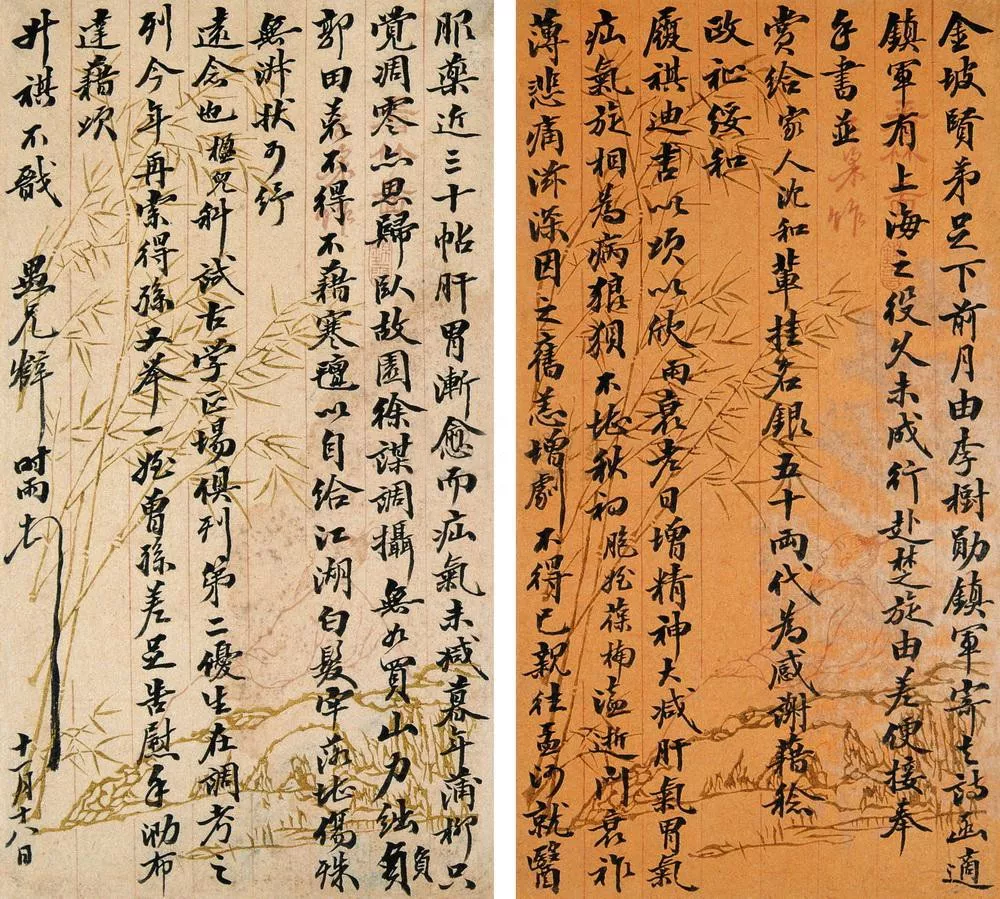 金坡賢弟足下前月由李樹勛鎮軍寄去詩函適
鎮軍有上海之役久未成行赴楚之旋由差便接奉
手書並
賞給家人沈和輩挂名銀五十両代為感謝藉稔
政祉綏和
履祺迪吉以頌以欣雨衰老日增精神大減肝氣胃氣
疝氣旋相為病狼狽不堪秋初
溘逝門衰祚
薄悲痛滋深因之舊恙增劇不得已親往孟河就醫
服藥近三十帖肝胃漸愈而疝氣未減暮年蒲柳只
覺凋零亟思歸臥故園徐謀調攝無如買山力絀負
郭田衰不得不藉寒氊以自給江湖白髮牢落堪傷殊
無淋狀可紓
遠念也 科試古學正場俱列第二優生在調考之
列今年再索得孫又舉一姪曾孫差足告慰手泐布
達藉頌
升祺不戩 愚兄 時雨 十一月十八日